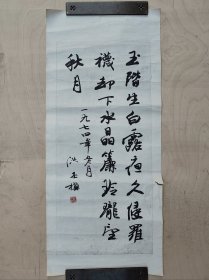 玉階生白露夜久侵羅
襪却下水晶簾玲瓏望
秋月
一九七四年冬月